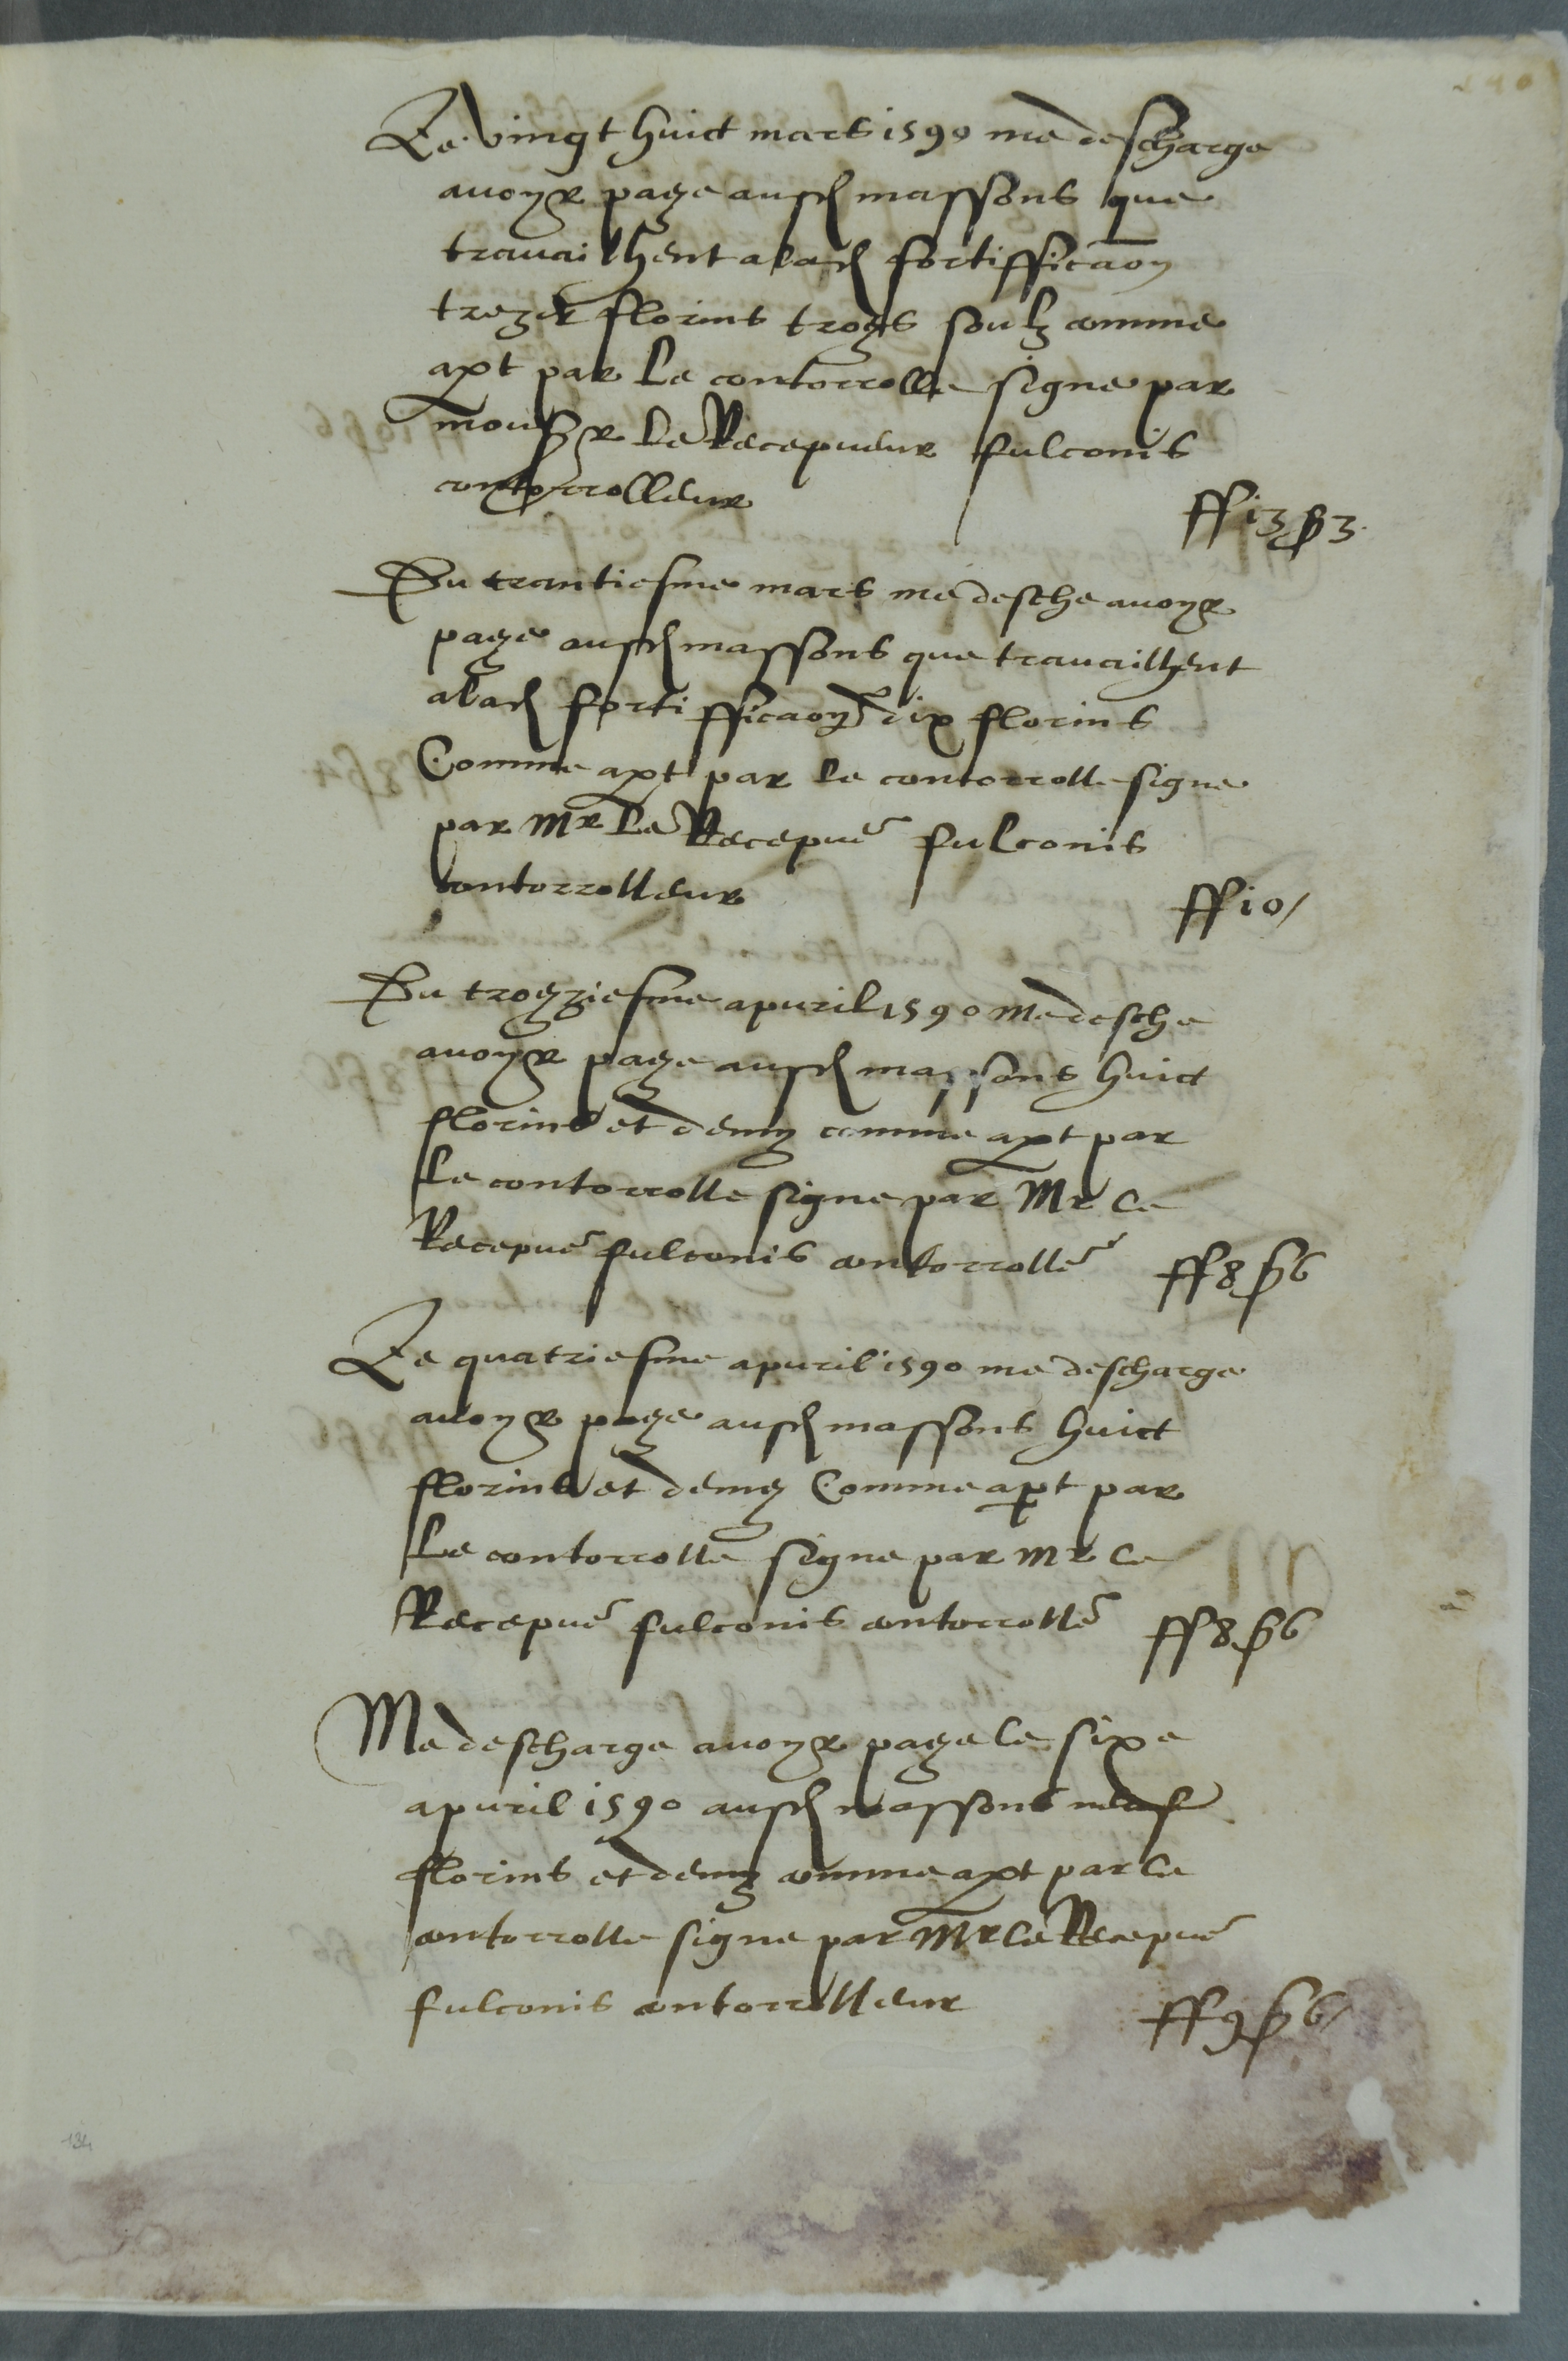 Le vingt huict mars 1590 me descharge
avoyr paye ausd massons que
travailhent a lad fortifficaon
treze florins troys soulz comme
apt par le contorrolle signe par
monsr le Recepveur fulconis
contorrolleur ff 13 s 3
Du trantiesme mars me desche avoyr
paye ausd massons que travailhent
a lad fortifficaon dix florins
Comme apt par le contorrolle signe
par Mr le Recepur fulconis
contorrolleur ff 10/
Du troyziesme apvril 1590 me desche
avoyr paye ausd massons huict
florins et demy comme apt par
le contorrolle signe par Mr le
Recepur fulconis contorroller ff 8 s 6
Le quatriesme apvril 1590 me descharge
avoyr paye ausd massons huict
florins et demy Comme apt par
le contorrolle signe par Mr le
Recepur fulconis contorroller ff 8 s 6
Me descharge avoyr paye le sixe
apvril 1590 ausd massons neuf
florins et demy comme apt par le
contorrolle signe par Mr le Recepur
fulconis contorrolleur ff 9 s 6/
134